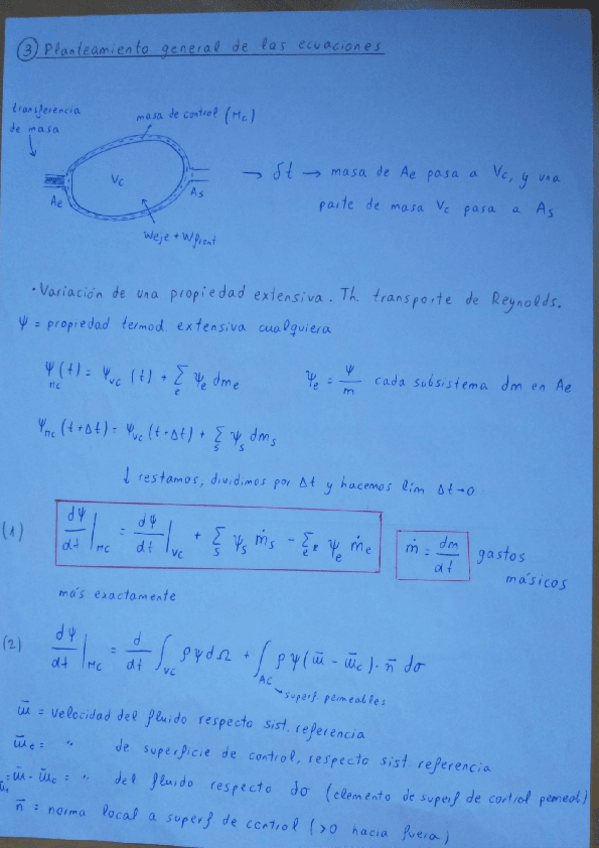 ③ Planteamiento general de las ecuaciones
transferencia
de masa
masa de control (Mc)
Vc
Ae
As
Weje + Wfront
→ δt → masa de Ae pasa a Vc, y una
parte de masa Vc pasa a As
· Variación de una propiedad extensiva. Th. transporte de Reynolds.
Ψ = propiedad termod extensiva cualquiera
Ψ_MC (t) = Ψ_VC (t) + Σ_e Ψ_e dm_e    Ψ_e = Ψ/m cada subsistema dm en Ae
Ψ_MC (t+Δt) = Ψ_VC (t+Δt) + Σ_s Ψ_s dm_s
↓ restamos, dividimos por Δt y hacemos lim Δt→0
(1) dΨ/dt|_MC = dΨ/dt|_VC + Σ_s Ψ_s ṁ_s − Σ_e Ψ_e ṁ_e    ṁ = dm/dt gastos
másicos
más exactamente
(2) dΨ/dt|_MC = d/dt ∫_VC ρΨdΩ + ∫_AC ρΨ(ω̄ − ω̄_c)·n̄ dσ
→ superf. permeables
ω̄ = velocidad del fluido respecto sist. referencia
ω̄_c = " de superficie de control, respecto sist referencia
= ω̄ - ω̄_c = " del fluido respecto dσ (elemento de superf de control permeabl)
n̄ = norma local a superf de control (>0 hacia fuera)